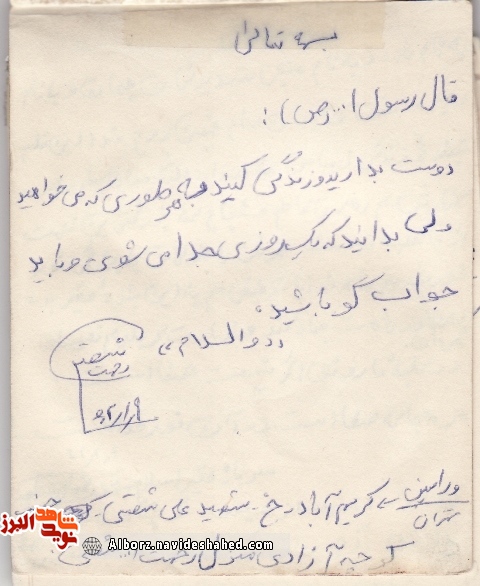 بسمه تعالی
قال رسول ا... (ص) :
دوست بدارید و زندگی کنید به هر طوری که می خواهید
ولی بدانید که یکروزی جدا می شوی و باید
جواب گو باشید.
,, والسلام ,,
شفقتی
رحمت
ورامین – کریم آباد – خ – شهید علی شفقتی –
تهران
کوچه آزادی منزل رحمت شفقتی
نوید شاهد البرز
Alborz.navideshahed.com